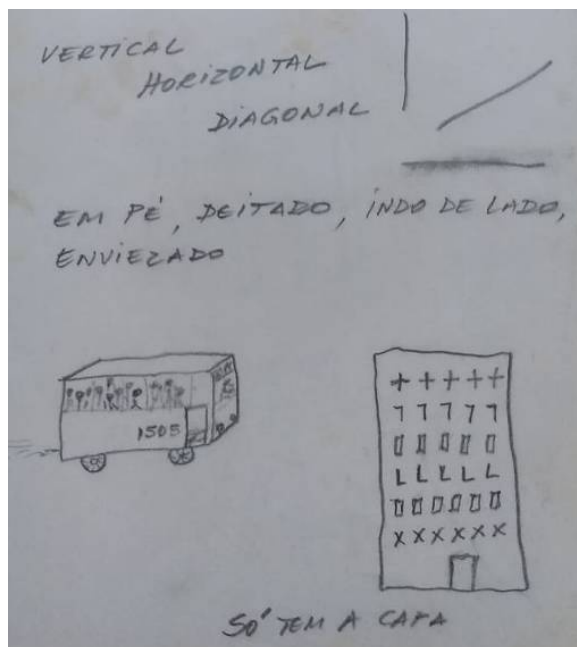 VERTICAL
HORIZONTAL
DIAGONAL
EM PÉ, DEITADO, INDO DE LADO,
ENVIEZADO
1505
+ + + + +
7 7 7 7 7
L L L L L
X X X X X X
SÓ TEM A CAPA